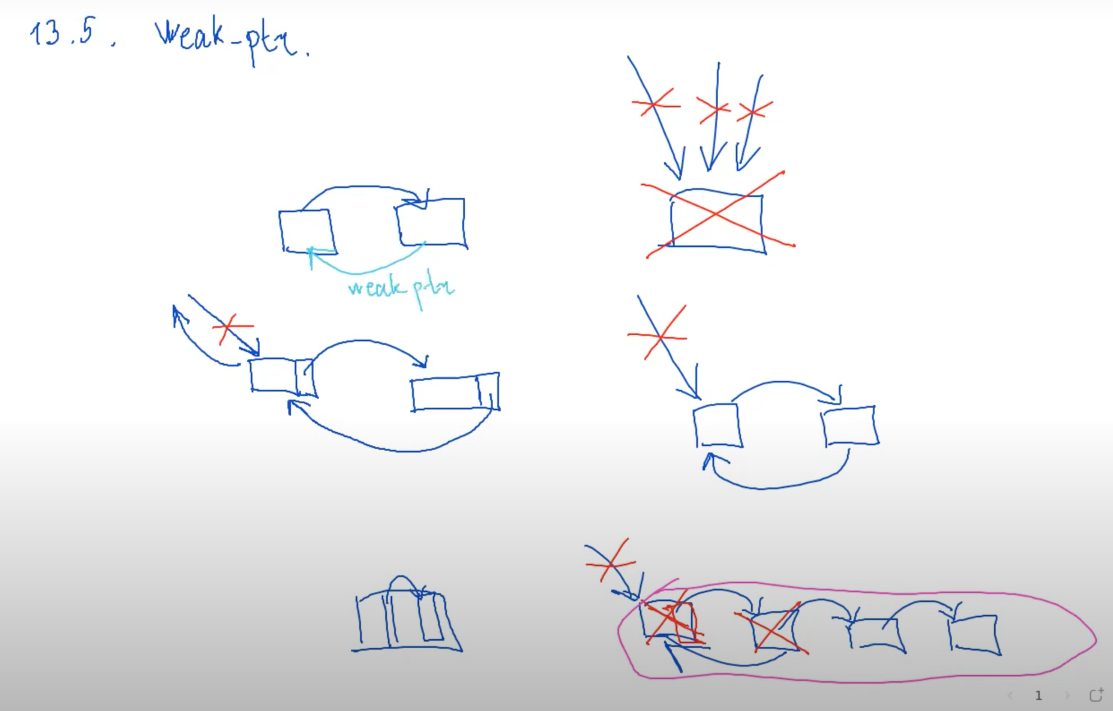 13.5. weak-ptr.
weak ptr
1